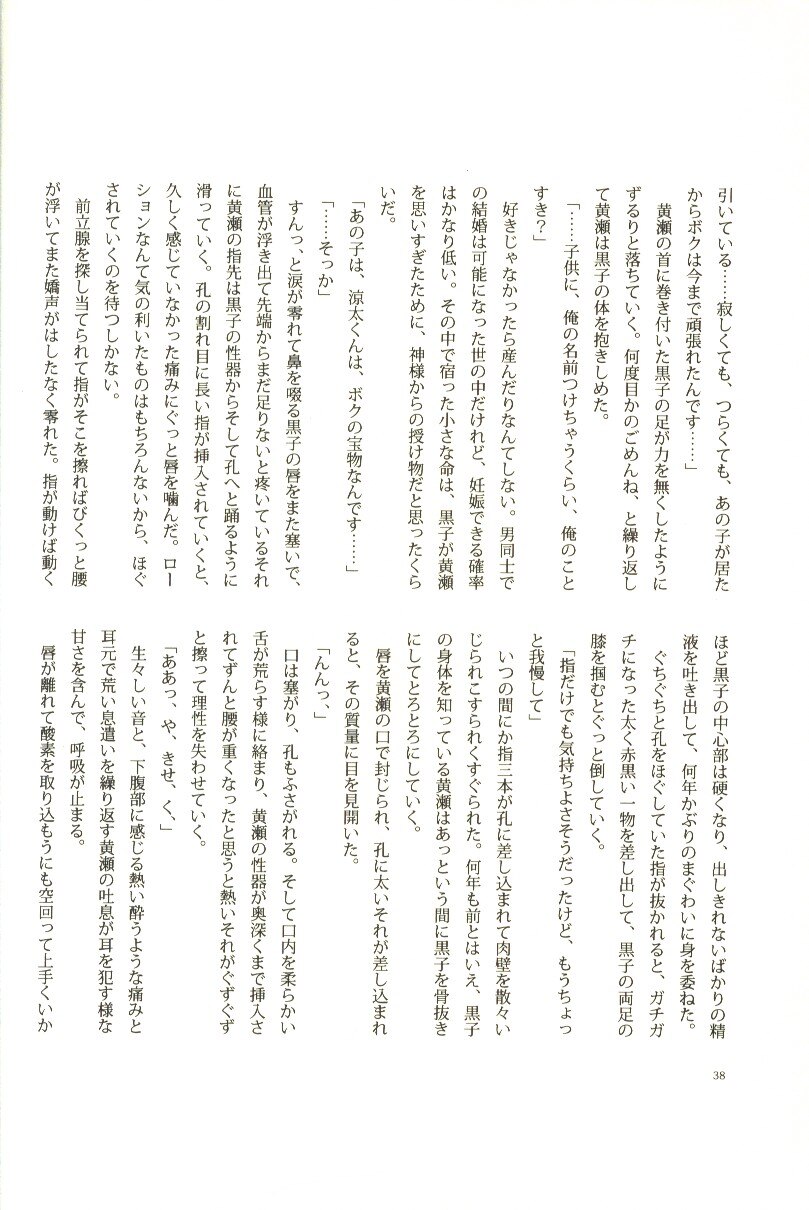 引いている……寂しくても、つらくても、あの子が居た
からボクは今まで頑張れたんです……」
黄瀬の首に巻き付いた黒子の足が力を無くしたように
ずるりと落ちていく。何度目かのごめんね、と繰り返し
て黄瀬は黒子の体を抱きしめた。
「……子供に、俺の名前つけちゃうくらい、俺のこと
すき？」
好きじゃなかったら産んだりなんてしない。男同士で
の結婚は可能になった世の中だけれど、妊娠できる確率
はかなり低い。その中で宿った小さな命は、黒子が黄瀬
を思いすぎたために、神様からの授け物だと思ったくら
いだ。
「あの子は、涼太くんは、ボクの宝物なんです……」
「……そっか」
すんっ、と涙が零れて鼻を啜る黒子の唇をまた塞いで、
血管が浮き出て先端からまだ足りないと疼いているそれ
に黄瀬の指先は黒子の性器からそして孔へと踊るように
滑っていく。孔の割れ目に長い指が挿入されていくと、
久しく感じていなかった痛みにぐっと唇を噛んだ。ロー
ションなんて気の利いたものはもちろんないから、ほぐ
されていくのを待つしかない。
前立腺を探し当てられて指がそこを擦ればびくっと腰
が浮いてまた嬌声がはしたなく零れた。指が動けば動く
ほど黒子の中心部は硬くなり、出しきれないばかりの精
液を吐き出して、何年かぶりのまぐわいに身を委ねた。
ぐちぐちと孔をほぐしていた指が抜かれると、ガチガ
チになった太く赤黒い一物を差し出して、黒子の両足の
膝を掴むとぐっと倒していく。
「指だけでも気持ちよさそうだったけど、もうちょっ
と我慢して」
いつの間にか指三本が孔に差し込まれて肉壁を散々い
じられこすられくすぐられた。何年も前とはいえ、黒子
の身体を知っている黄瀬はあっという間に黒子を骨抜き
にしてとろとろにしていく。
唇を黄瀬の口で封じられ、孔に太いそれが差し込まれ
ると、その質量に目を見開いた。
「んんっ、」
口は塞がり、孔もふさがれる。そして口内を柔らかい
舌が荒らす様に絡まり、黄瀬の性器が奥深くまで挿入さ
れてずんと腰が重くなったと思うと熱いそれがぐずぐず
と擦って理性を失わせていく。
「ああっ、や、きせ、く、」
生々しい音と、下腹部に感じる熱い酔うような痛みと
耳元で荒い息遣いを繰り返す黄瀬の吐息が耳を犯す様な
甘さを含んで、呼吸が止まる。
唇が離れて酸素を取り込もうにも空回って上手くいか
38